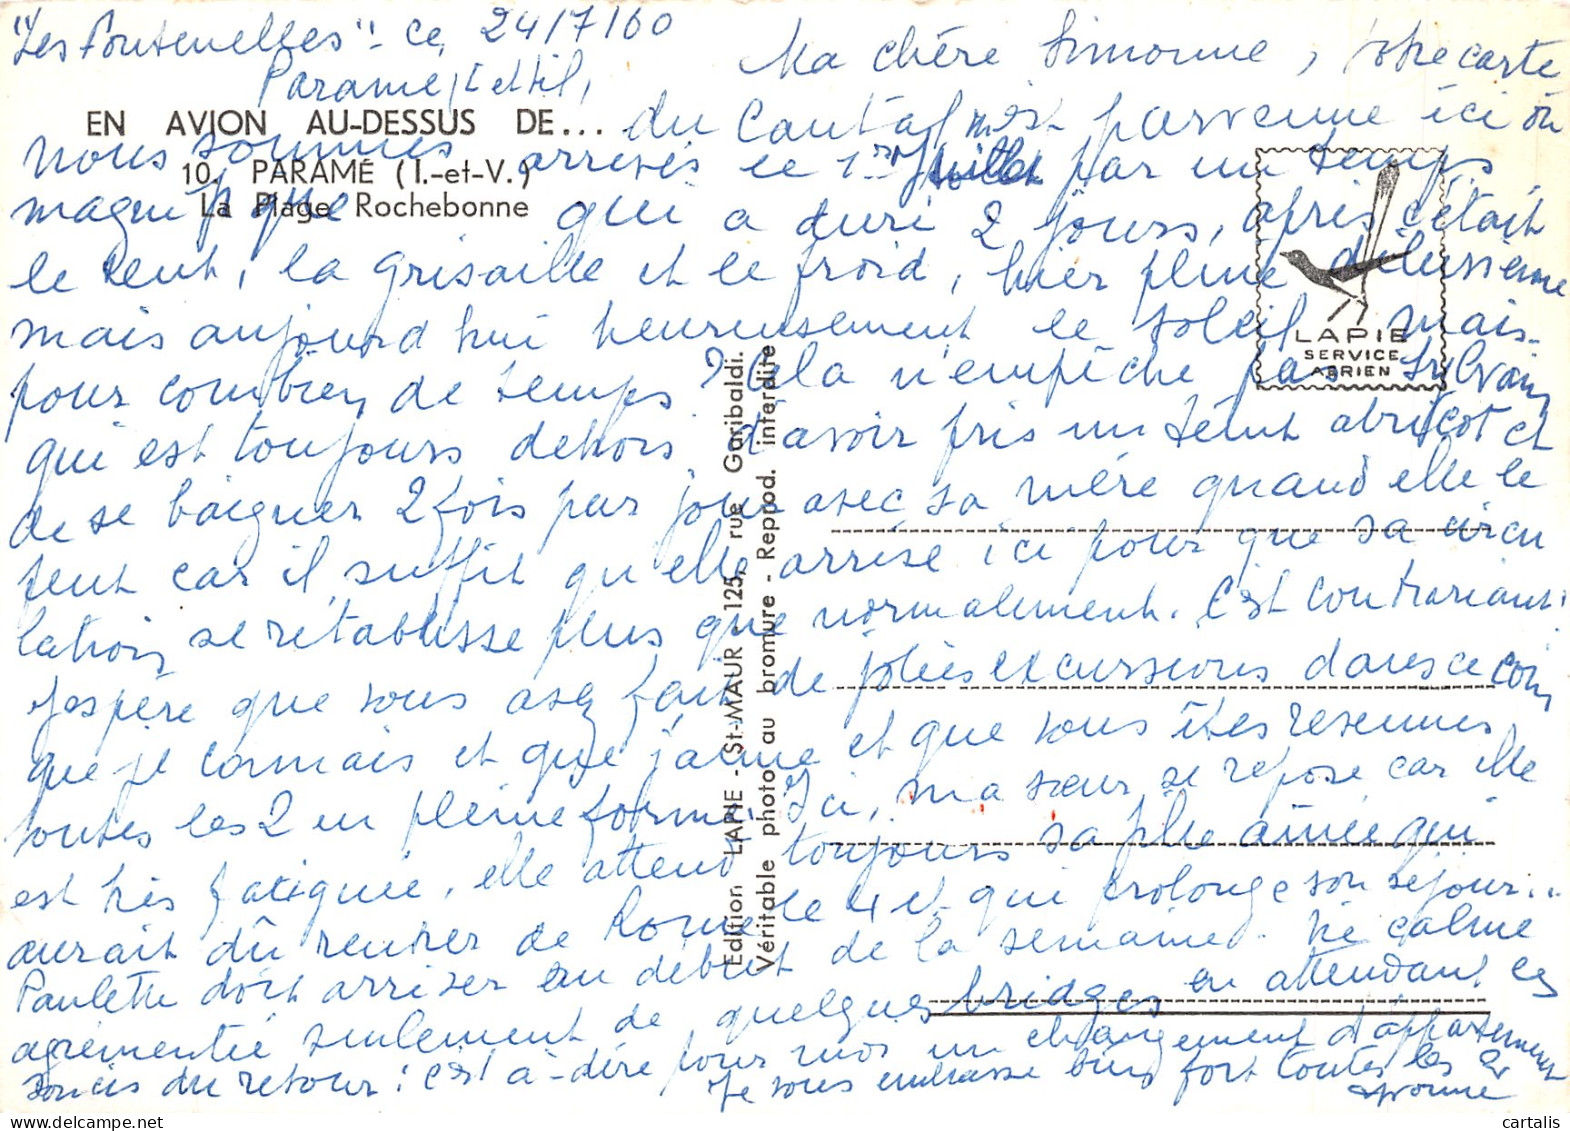 "Les Fontenelles" - ce 24/7/60
Paramé, I. et Vil,
Ma chère Simonne, votre carte
EN AVION AU-DESSUS DE...
du Cantal m'est parvenue ici où
nous sommes arrivés le 1er Juillet par un temps
10. PARAMÉ (I.-et-V.)
La Plage Rochebonne
magnifique qui a duré 2 jours, après c'était
le vent, la grisaille et le froid, hier pluie diluvienne
mais aujourd'hui heureusement le soleil, mais
pour combien de temps ? Cela n'empêche pas Sylvain
qui est toujours dehors, d'avoir pris un teint abricot et
de se baigner 2 fois par jour avec sa mère quand elle le
peut car il suffit qu'elle arrive ici pour que sa circu
lation se rétablisse plus que normalement. C'est contrariant.
J'espère que vous avez fait de jolies excursions dans ce coin
que je connais et que j'aime et que vous êtes revenues
toutes les 2 en pleine forme. Ici, ma sœur se repose car elle
est très fatiguée, elle attend toujours sa fille aînée qui
aurait dû rentrer de Rome le 4 et qui prolonge son séjour..
Paulette doit arriver au début de la semaine. Vie calme
agrémentée seulement de quelques bridges en attendant les
soucis du retour : c'est à-dire pour moi un changement d'appartement
Je vous embrasse bien fort toutes les 2
Yvonne
LAPIE
SERVICE
AERIEN
Edition LAPIE - St-MAUR - 125, rue Garibaldi.
Véritable photo au bromure - Reprod. interdite
cartalis.com